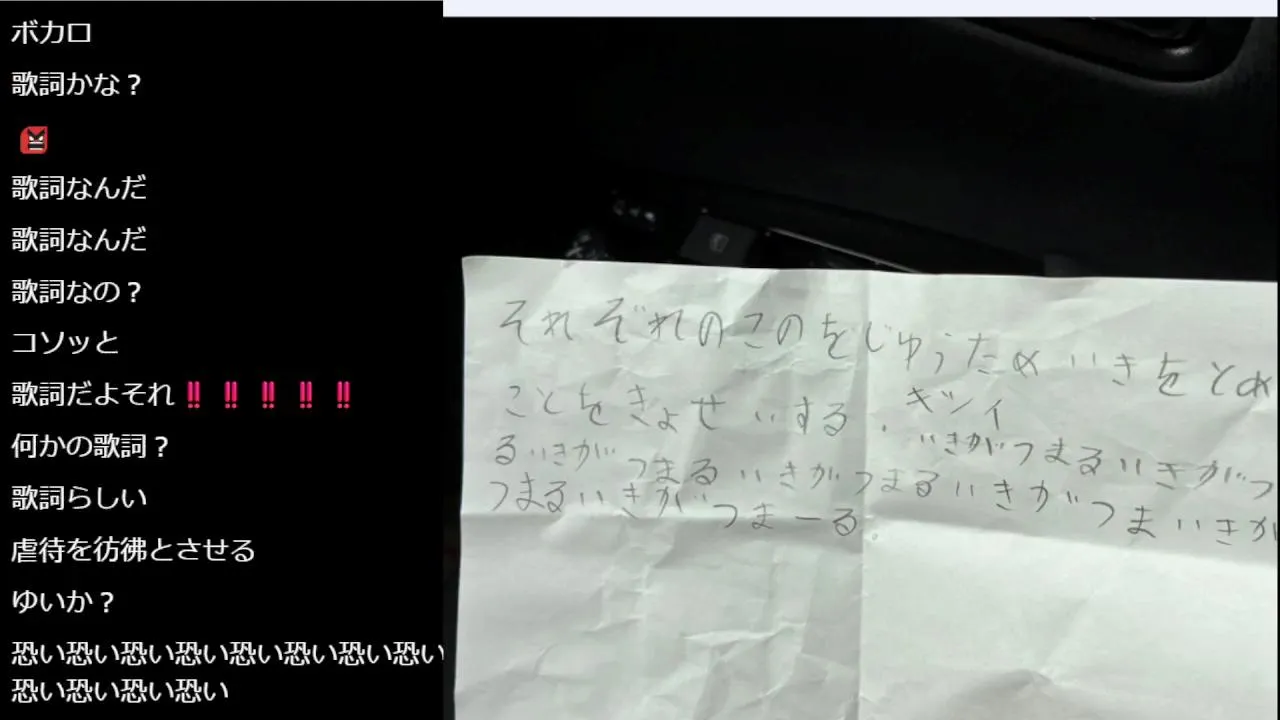 ボカロ
歌詞かな？
歌詞なんだ
歌詞なんだ
歌詞なの？
コソッと
歌詞だよそれ‼‼‼‼‼
何かの歌詞？
歌詞らしい
虐待を彷彿とさせる
ゆいか？
恐い恐い恐い恐い恐い恐い恐い恐い
恐い恐い恐い恐い
それぞれのこのをじゅうため いきをとめ
ことをきょせいする. キツイ
いきがつまるいきがつ
るいきがつまるいきがつまるいきがつまいきが
つまるいきがつまーる。